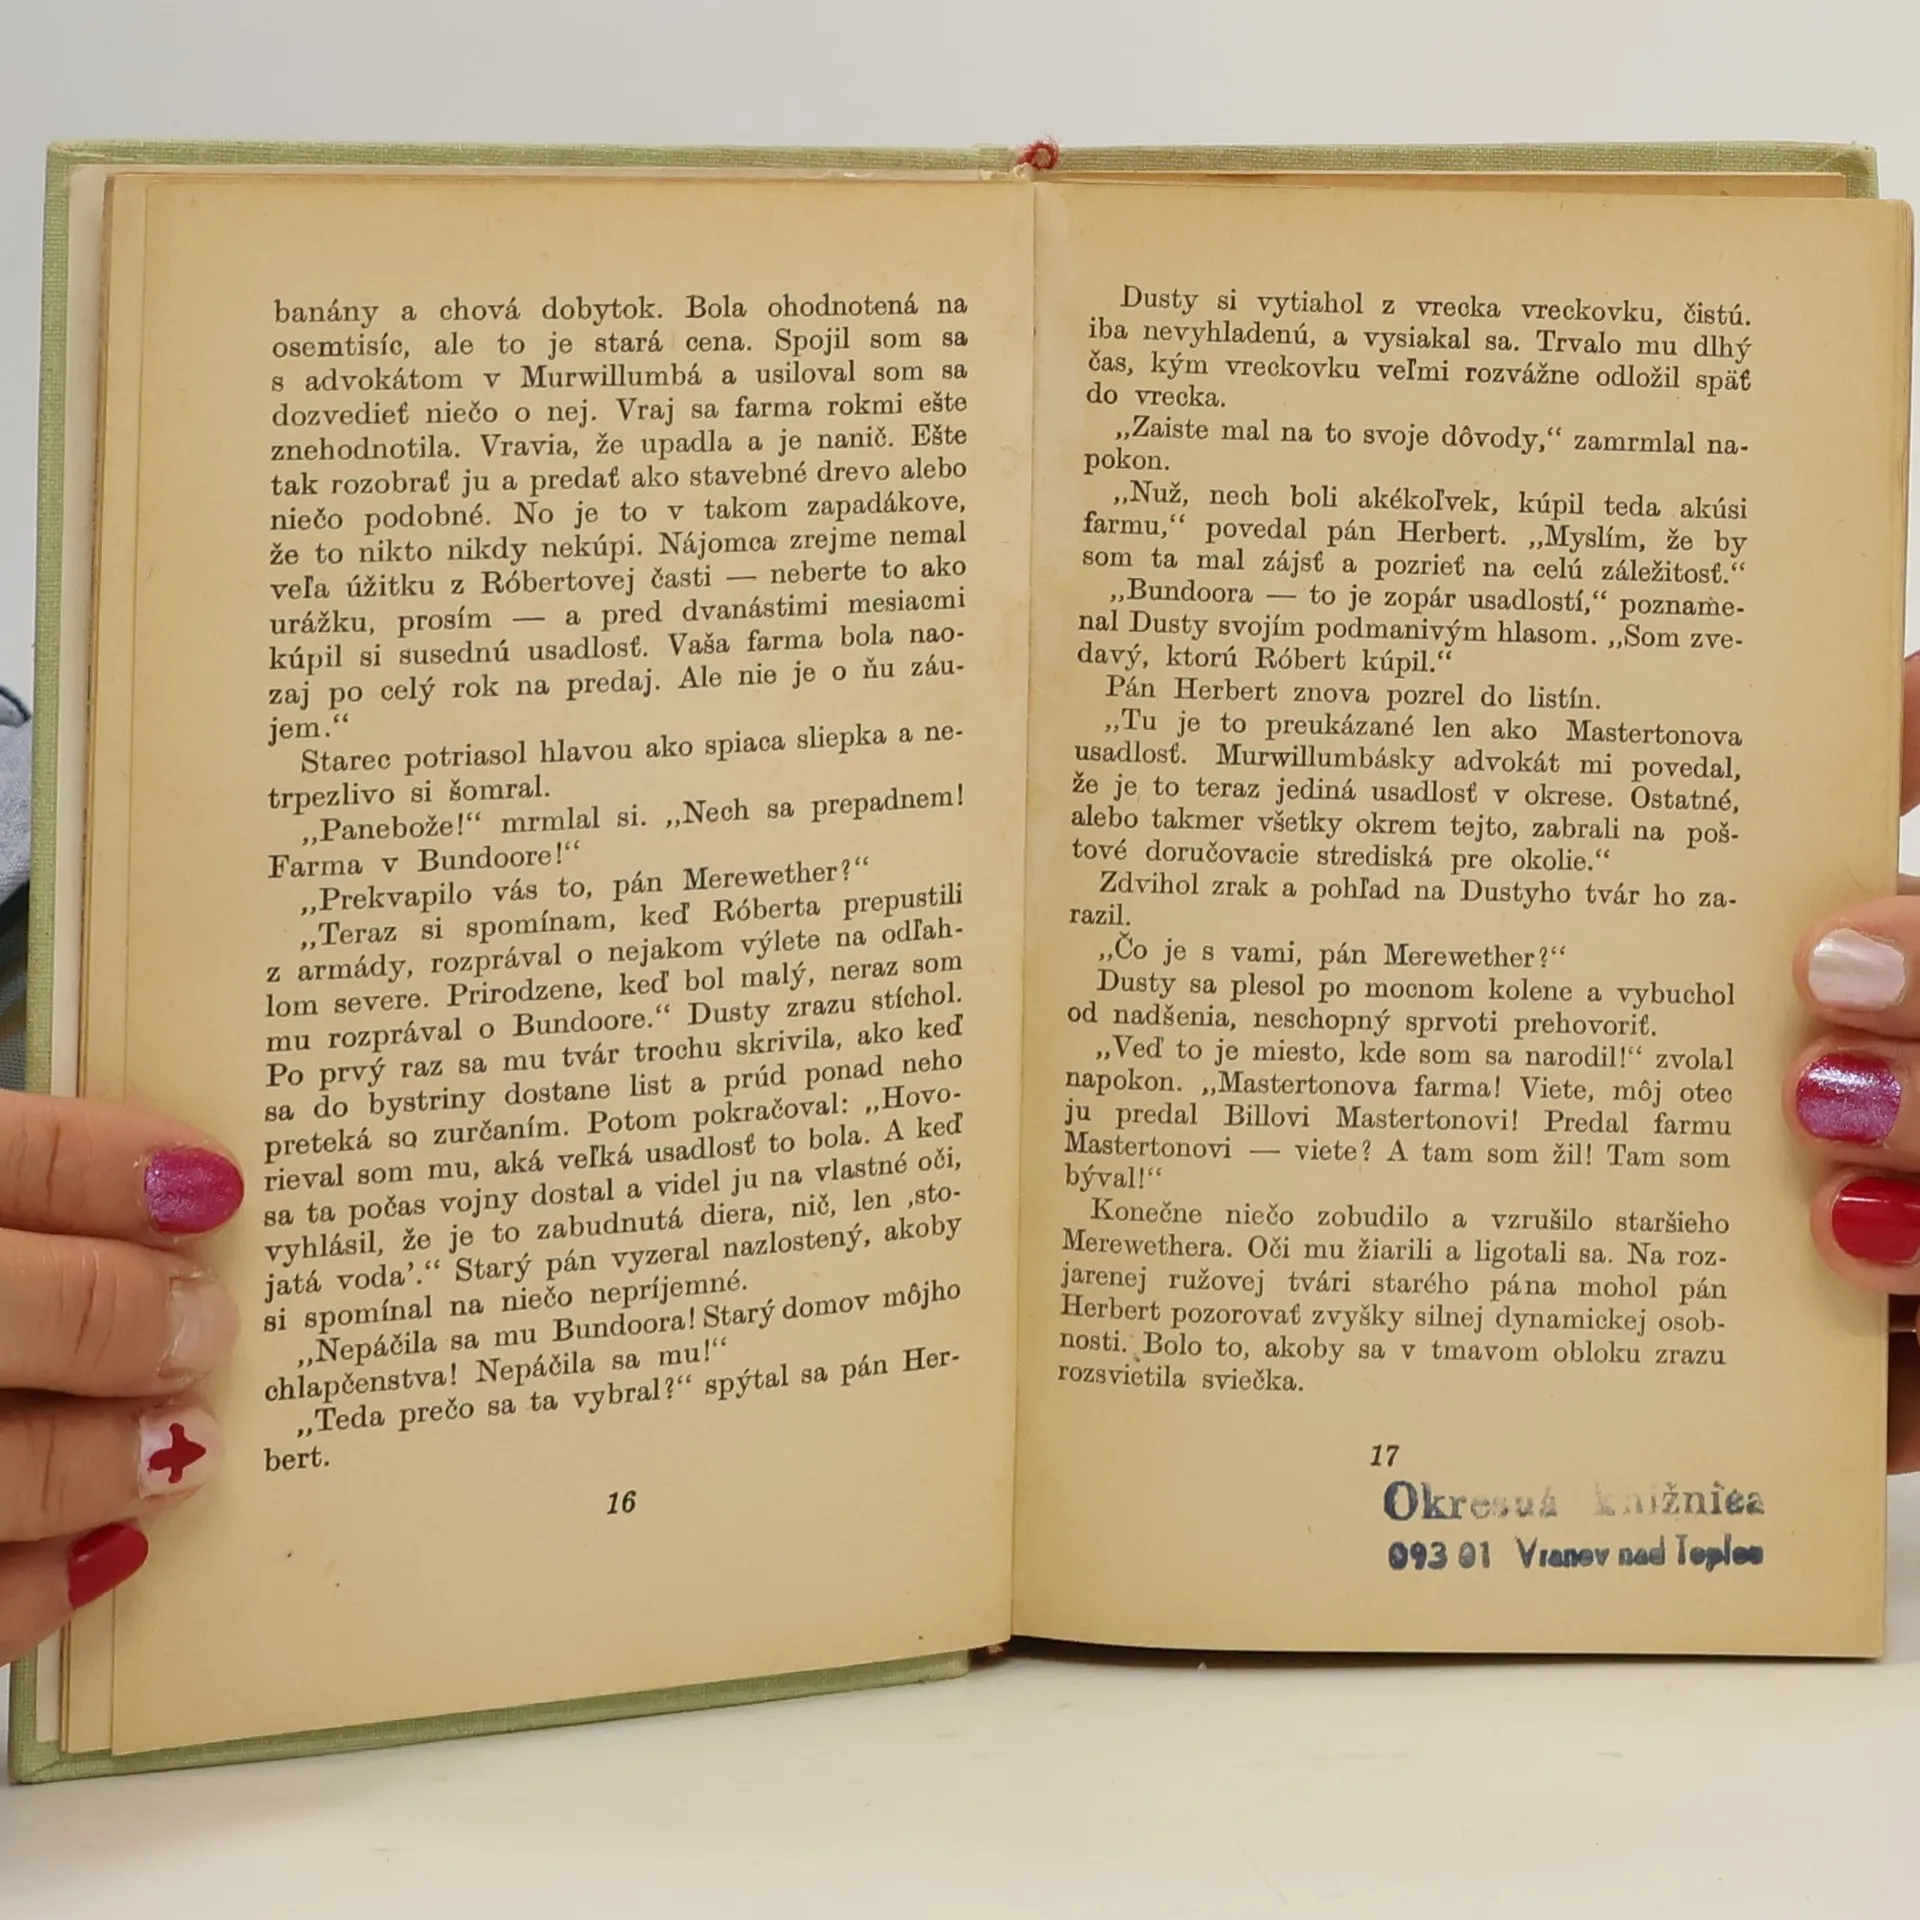 banány a chová dobytok. Bola ohodnotená na
osemtisíc, ale to je stará cena. Spojil som sa
s advokátom v Murwillumbá a usiloval som sa
dozvedieť niečo o nej. Vraj sa farma rokmi ešte
znehodnotila. Vravia, že upadla a je nanič. Ešte
tak rozobrať ju a predať ako stavebné drevo alebo
niečo podobné. No je to v takom zapadákove,
že to nikto nikdy nekúpi. Nájomca zrejme nemal
veľa úžitku z Róbertovej časti — neberte to ako
urážku, prosím — a pred dvanástimi mesiacmi
kúpil si susednú usadlosť. Vaša farma bola nao-
zaj po celý rok na predaj. Ale nie je o ňu záu-
jem.“
Starec potriasol hlavou ako spiaca sliepka a ne-
trpezlivo si šomral.
„Panebože!“ mrmlal si. „Nech sa prepadnem!
Farma v Bundoore!“
„Prekvapilo vás to, pán Merewether?“
„Teraz si spomínam, keď Róberta prepustili
z armády, rozprával o nejakom výlete na odľah-
lom severe. Prirodzene, keď bol malý, neraz som
mu rozprával o Bundoore.“ Dusty zrazu stíchol.
Po prvý raz sa mu tvár trochu skrivila, ako keď
sa do bystriny dostane list a prúd ponad neho
preteká so zurčaním. Potom pokračoval: „Hovo-
rieval som mu, aká veľká usadlosť to bola. A keď
sa ta počas vojny dostal a videl ju na vlastné oči,
vyhlásil, že je to zabudnutá diera, nič, len ‚sto-
jatá voda’.“ Starý pán vyzeral nazlostený, akoby
si spomínal na niečo nepríjemné.
„Nepáčila sa mu Bundoora! Starý domov môjho
chlapčenstva! Nepáčila sa mu!“
„Teda prečo sa ta vybral?“ spýtal sa pán Her-
bert.
16
Dusty si vytiahol z vrecka vreckovku, čistú.
iba nevyhladenú, a vysiakal sa. Trvalo mu dlhý
čas, kým vreckovku veľmi rozvážne odložil späť
do vrecka.
„Zaiste mal na to svoje dôvody,“ zamrmlal na-
pokon.
„Nuž, nech boli akékoľvek, kúpil teda akúsi
farmu,“ povedal pán Herbert. „Myslím, že by
som ta mal zájsť a pozrieť na celú záležitosť.“
„Bundoora — to je zopár usadlostí,“ pozname-
nal Dusty svojím podmanivým hlasom. „Som zve-
davý, ktorú Róbert kúpil.“
Pán Herbert znova pozrel do listín.
„Tu je to preukázané len ako Mastertonova
usadlosť. Murwillumbásky advokát mi povedal,
že je to teraz jediná usadlosť v okrese. Ostatné,
alebo takmer všetky okrem tejto, zabrali na poš-
tové doručovacie strediská pre okolie.“
Zdvihol zrak a pohľad na Dustyho tvár ho za-
razil.
„Čo je s vami, pán Merewether?“
Dusty sa plesol po mocnom kolene a vybuchol
od nadšenia, neschopný sprvoti prehovoriť.
„Veď to je miesto, kde som sa narodil!“ zvolal
napokon. „Mastertonova farma! Viete, môj otec
ju predal Billovi Mastertonovi! Predal farmu
Mastertonovi — viete? A tam som žil! Tam som
býval!“
Konečne niečo zobudilo a vzrušilo staršieho
Merewethera. Oči mu žiarili a ligotali sa. Na roz-
jarenej ružovej tvári starého pána mohol pán
Herbert pozorovať zvyšky silnej dynamickej osob-
nosti. Bolo to, akoby sa v tmavom obloku zrazu
rozsvietila sviečka.
17
Okresná knižnica
093 01 Vranov nad Topľou